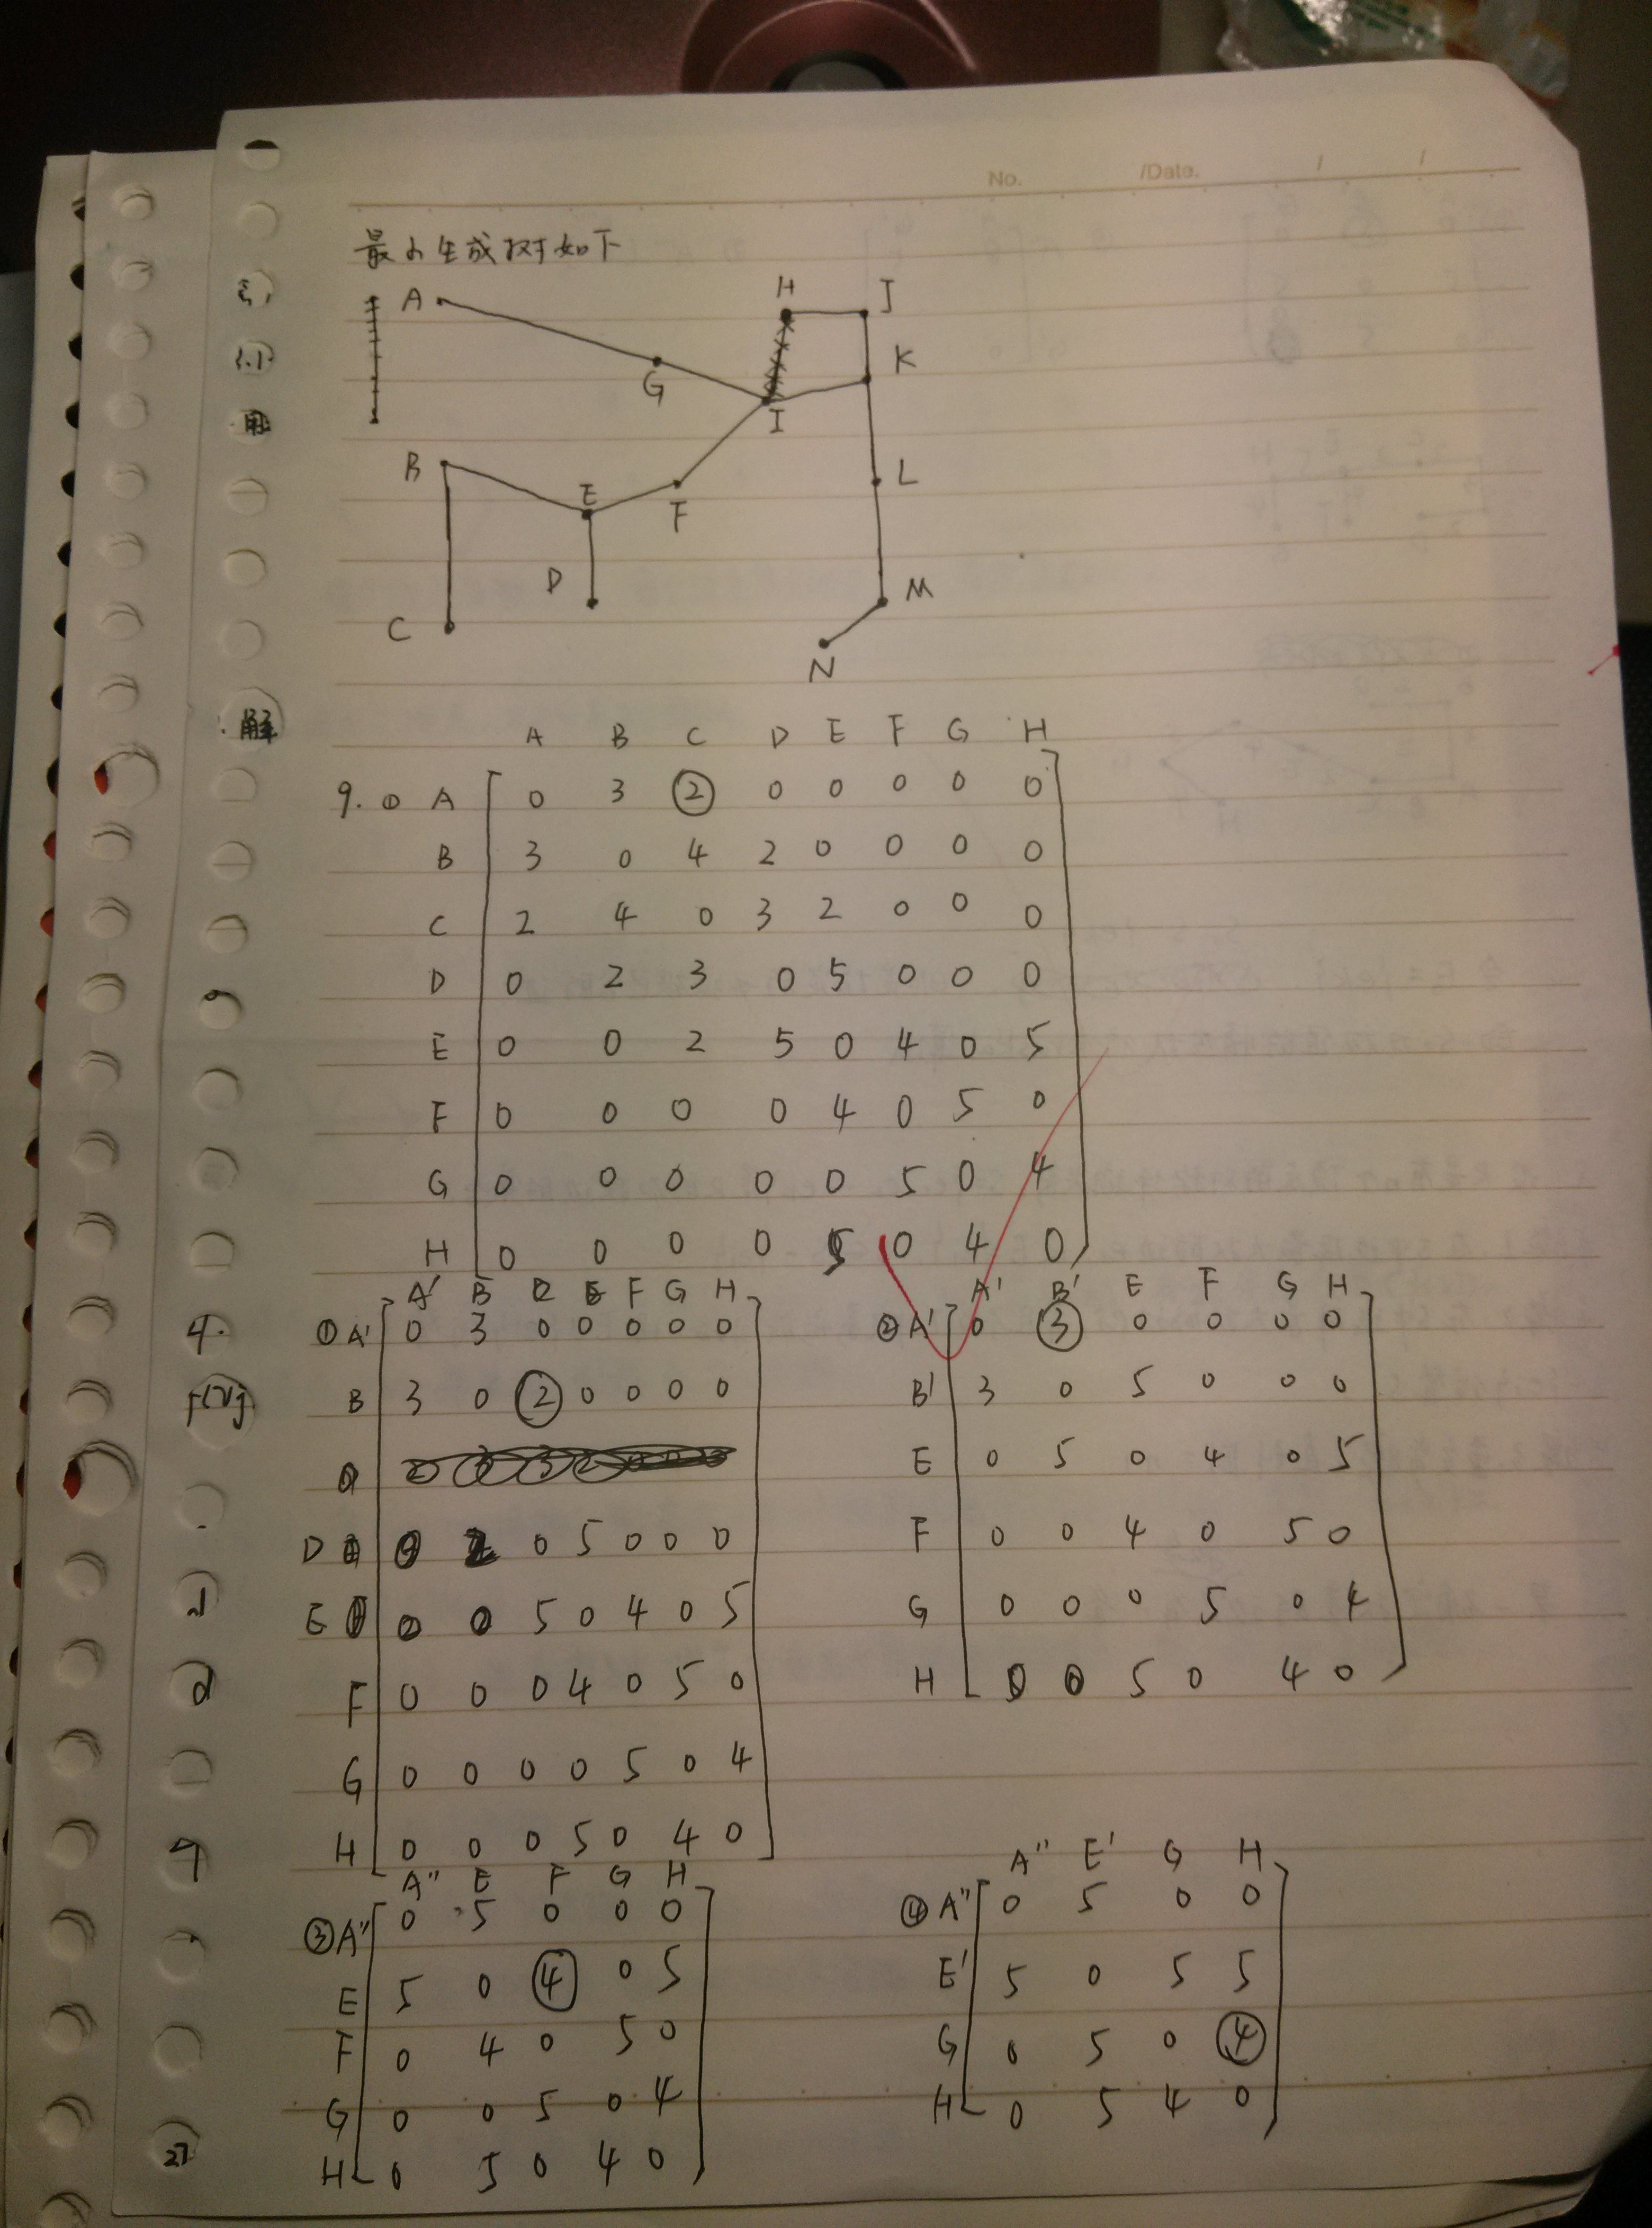 No. /Date. / /
最小生成树如下
H J
A
K
G
I
B
E L
F
D M
C
N
解
A B C D E F G H
9. ① A 0 3 ② 0 0 0 0 0
B 3 0 4 2 0 0 0 0
C 2 4 0 3 2 0 0 0
D 0 2 3 0 5 0 0 0
E 0 0 2 5 0 4 0 5
F 0 0 0 0 4 0 5 0
G 0 0 0 0 0 5 0 4
H 0 0 0 0 5 0 4 0
A' B F G H
① A' 0 3 0 0 0 0 0
B 3 0 ② 0 0 0 0
D 0 2 0 5 0 0 0
E 0 0 5 0 4 0 5
F 0 0 0 4 0 5 0
G 0 0 0 0 5 0 4
H 0 0 0 5 0 4 0
A' B' E F G H
② A' 0 ③ 0 0 0 0
B' 3 0 5 0 0 0
E 0 5 0 4 0 5
F 0 0 4 0 5 0
G 0 0 0 5 0 4
H 0 0 5 0 4 0
A'' E F G H
③ A'' 0 5 0 0 0
E 5 0 ④ 0 5
F 0 4 0 5 0
G 0 0 5 0 4
H 0 5 0 4 0
A'' E' G H
④ A'' 0 5 0 0
E' 5 0 5 5
G 0 5 0 ④
H 0 5 4 0
4.
27